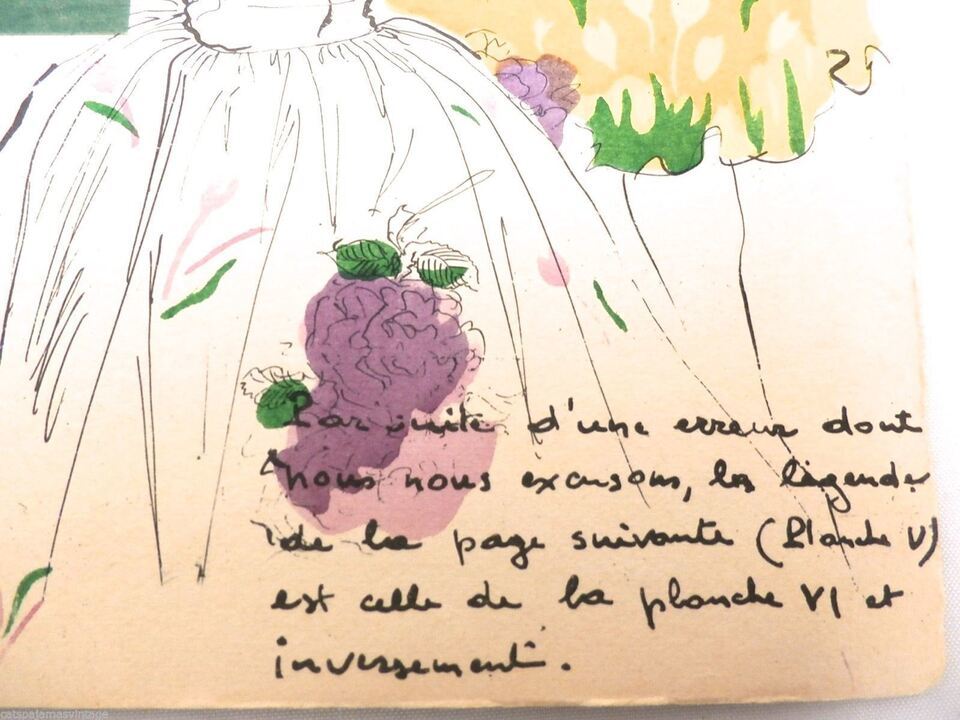 29
Par suite d'une erreur dont
nous nous excusons, la légende
de la page suivante (Planche V)
est celle de la planche VI et
inversement.
catspajamasvintage